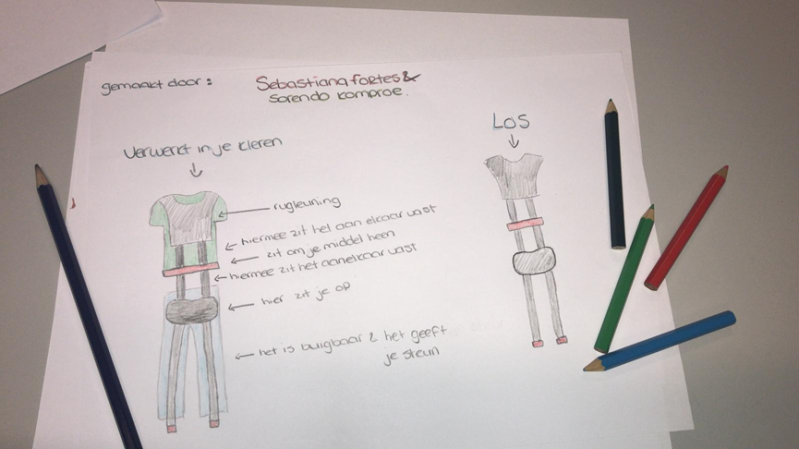 gemaakt door: Sebastiana fortes &
sorendo komproe.
LOS
Verwerkt in je kleren
rugleuning
hiermee zit het aan elkaar vast
zit om je middel heen
hiermee zit het aanelkaar vast
hier zit je op
het is buigbaar & het geeft
je steun